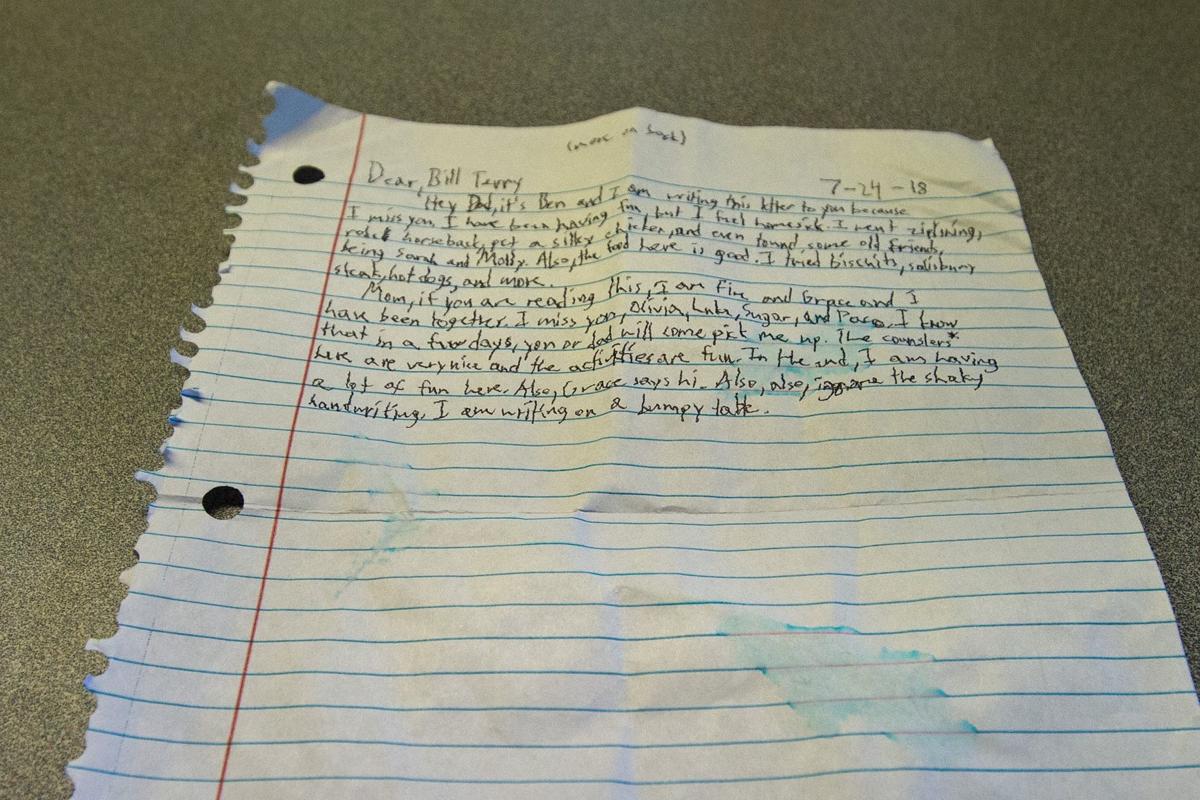 (more on back)
Dear, Bill Terry
7-24-18
Hey Dad, it's Ben and I am writing this letter to you because
I miss you. I have been having fun, but I feel homesick. I went ziplining,
rode horseback, pet a silky chicken, and even found some old friends,
being Sarah and Molly. Also, the food here is good. I tried biscuits, salisbury
steak, hot dogs, and more.
Mom, if you are reading this, I am fine and Grace and I
have been together. I miss you, Olivia, Luka, Sugar, and Paco. I know
that in a few days, you or dad will come pick me up. The counslers*
here are very nice and the activities are fun. In the end, I am having
a lot of fun here. Also, Grace says hi. Also, also, ignore the shaky
handwriting. I am writing on a bumpy table.